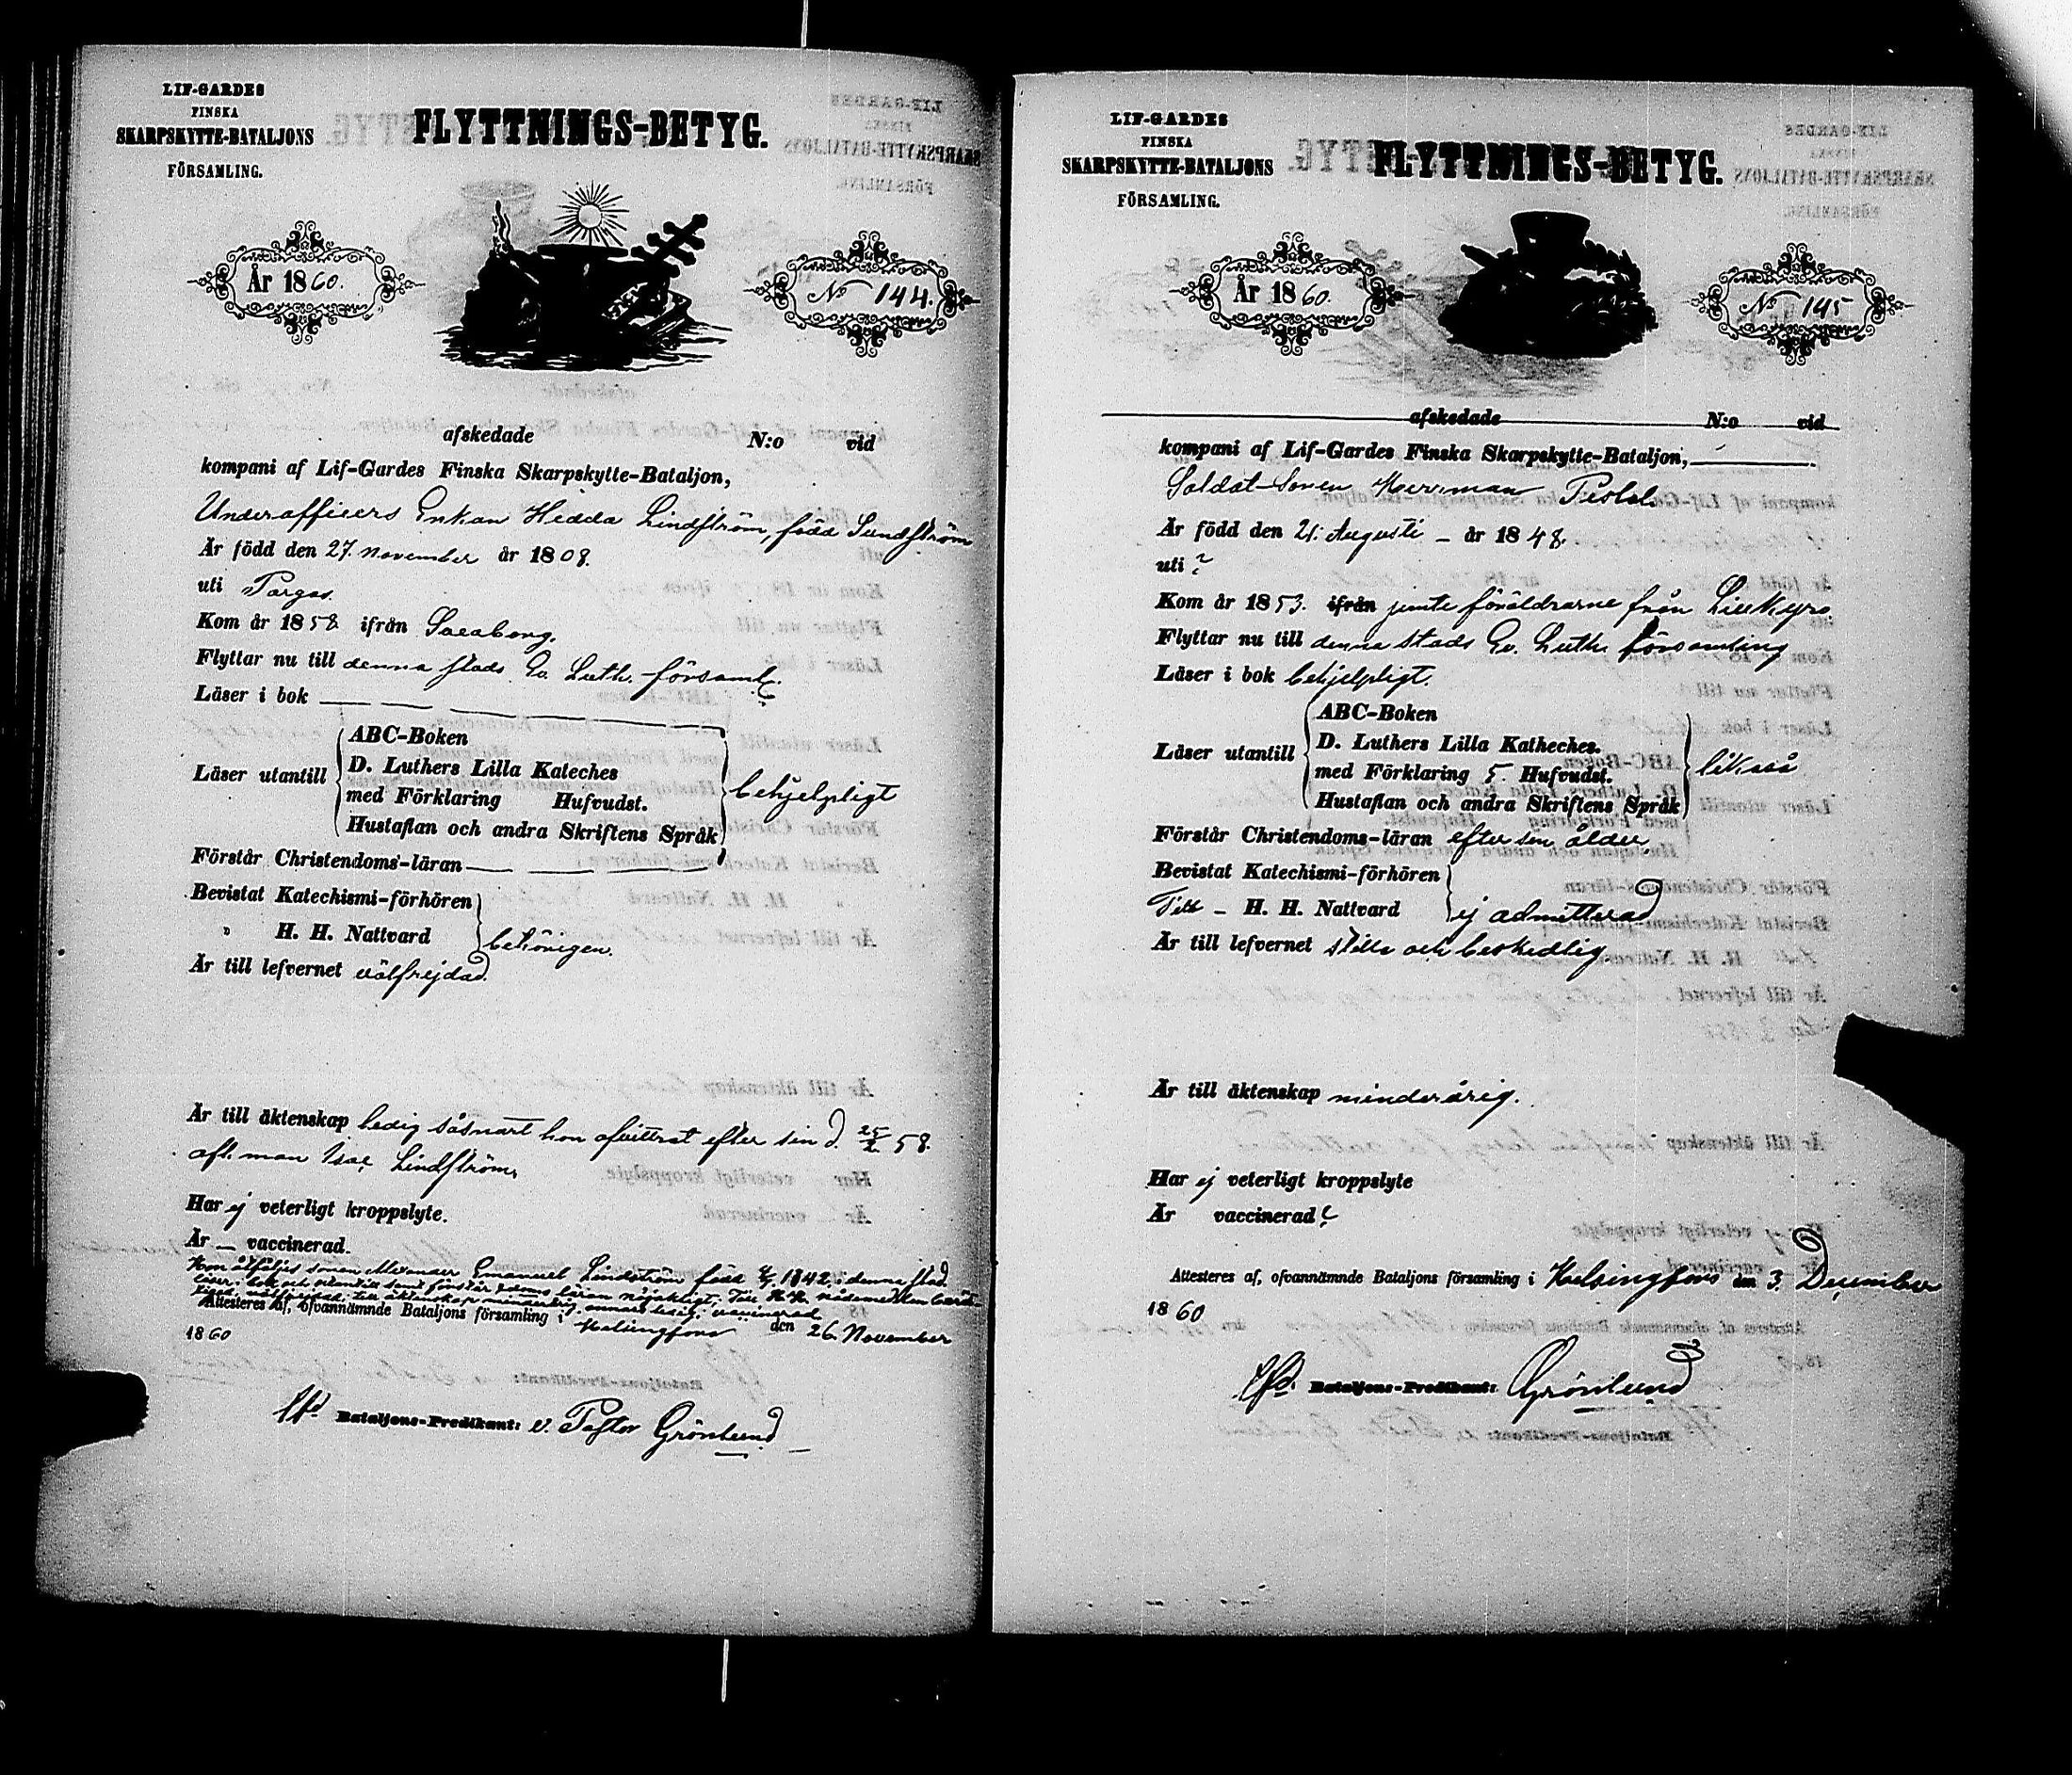 LIF-GARDES
FINSKA
SKARPSKYTTE-BATALJONS
FÖRSAMLING.
FLYTTNINGS-BETYG.
År 1860.
No 144.
afskedade N:o vid
kompani af Lif-Gardes Finska Skarpskytte-Bataljon,
Underofficers Enkan Hedda Lindström, född Sundström
Är född den 27. november år 1808.
uti Pargas.
Kom år 1858 ifrån Sveaborg.
Flyttar nu till denna stads Ev. Luth. församl.
Läser i bok
Läser utantill
ABC-Boken
D. Luthers Lilla Kateches
med Förklaring Hufvudst.
Hustaflan och andra Skriftens Språk
behjelpligt
Förstår Christendoms-läran
Bevistat Katechismi-förhören
" H. H. Nattvard
behörigen.
Är till lefvernet välfrejdad.
Är till äktenskap ledig såsnart hon afvittrat efter sin d. 25/2 58.
afl. man Isac Lindström.
Har ej veterligt kroppslyte.
Är — vaccinerad.
Hon åtföljes sonen Alexander Emanuel Lindström född 1842 i denna stad
läser i bok och utantill samt förstår
Attesteras af, ofvannämnde Bataljons församling i Helsingfors den 26. November
1860
Bataljons-Predikant: v. Pastor Grönlund
LIF-GARDES
FINSKA
SKARPSKYTTE-BATALJONS
FÖRSAMLING.
FLYTTNINGS-BETYG.
År 1860.
No 145
afskedade N:o vid
kompani af Lif-Gardes Finska Skarpskytte-Bataljon,
Soldat-Sonen Herrman
Är född den 21. Augusti – år 1848.
uti ?
Kom år 1853. ifrån jemte föräldrarne från Lillkyro
Flyttar nu till denna stads Ev. Luth. församling
Läser i bok behjelpligt.
Läser utantill
ABC-Boken
D. Luthers Lilla Katheches.
med Förklaring 5. Hufvudst.
Hustaflan och andra Skriftens Språk
likaså
Förstår Christendoms-läran efter sin ålder.
Bevistat Katechismi-förhören
Till – H. H. Nattvard
ej admitterad
Är till lefvernet stilla och beskedlig.
Är till äktenskap minderårig.
Har ej veterligt kroppslyte
Är vaccinerad?
Attesteras af, ofvannämnde Bataljons församling i Helsingfors den 3. December
1860
Bataljons-Predikant: Grönlund